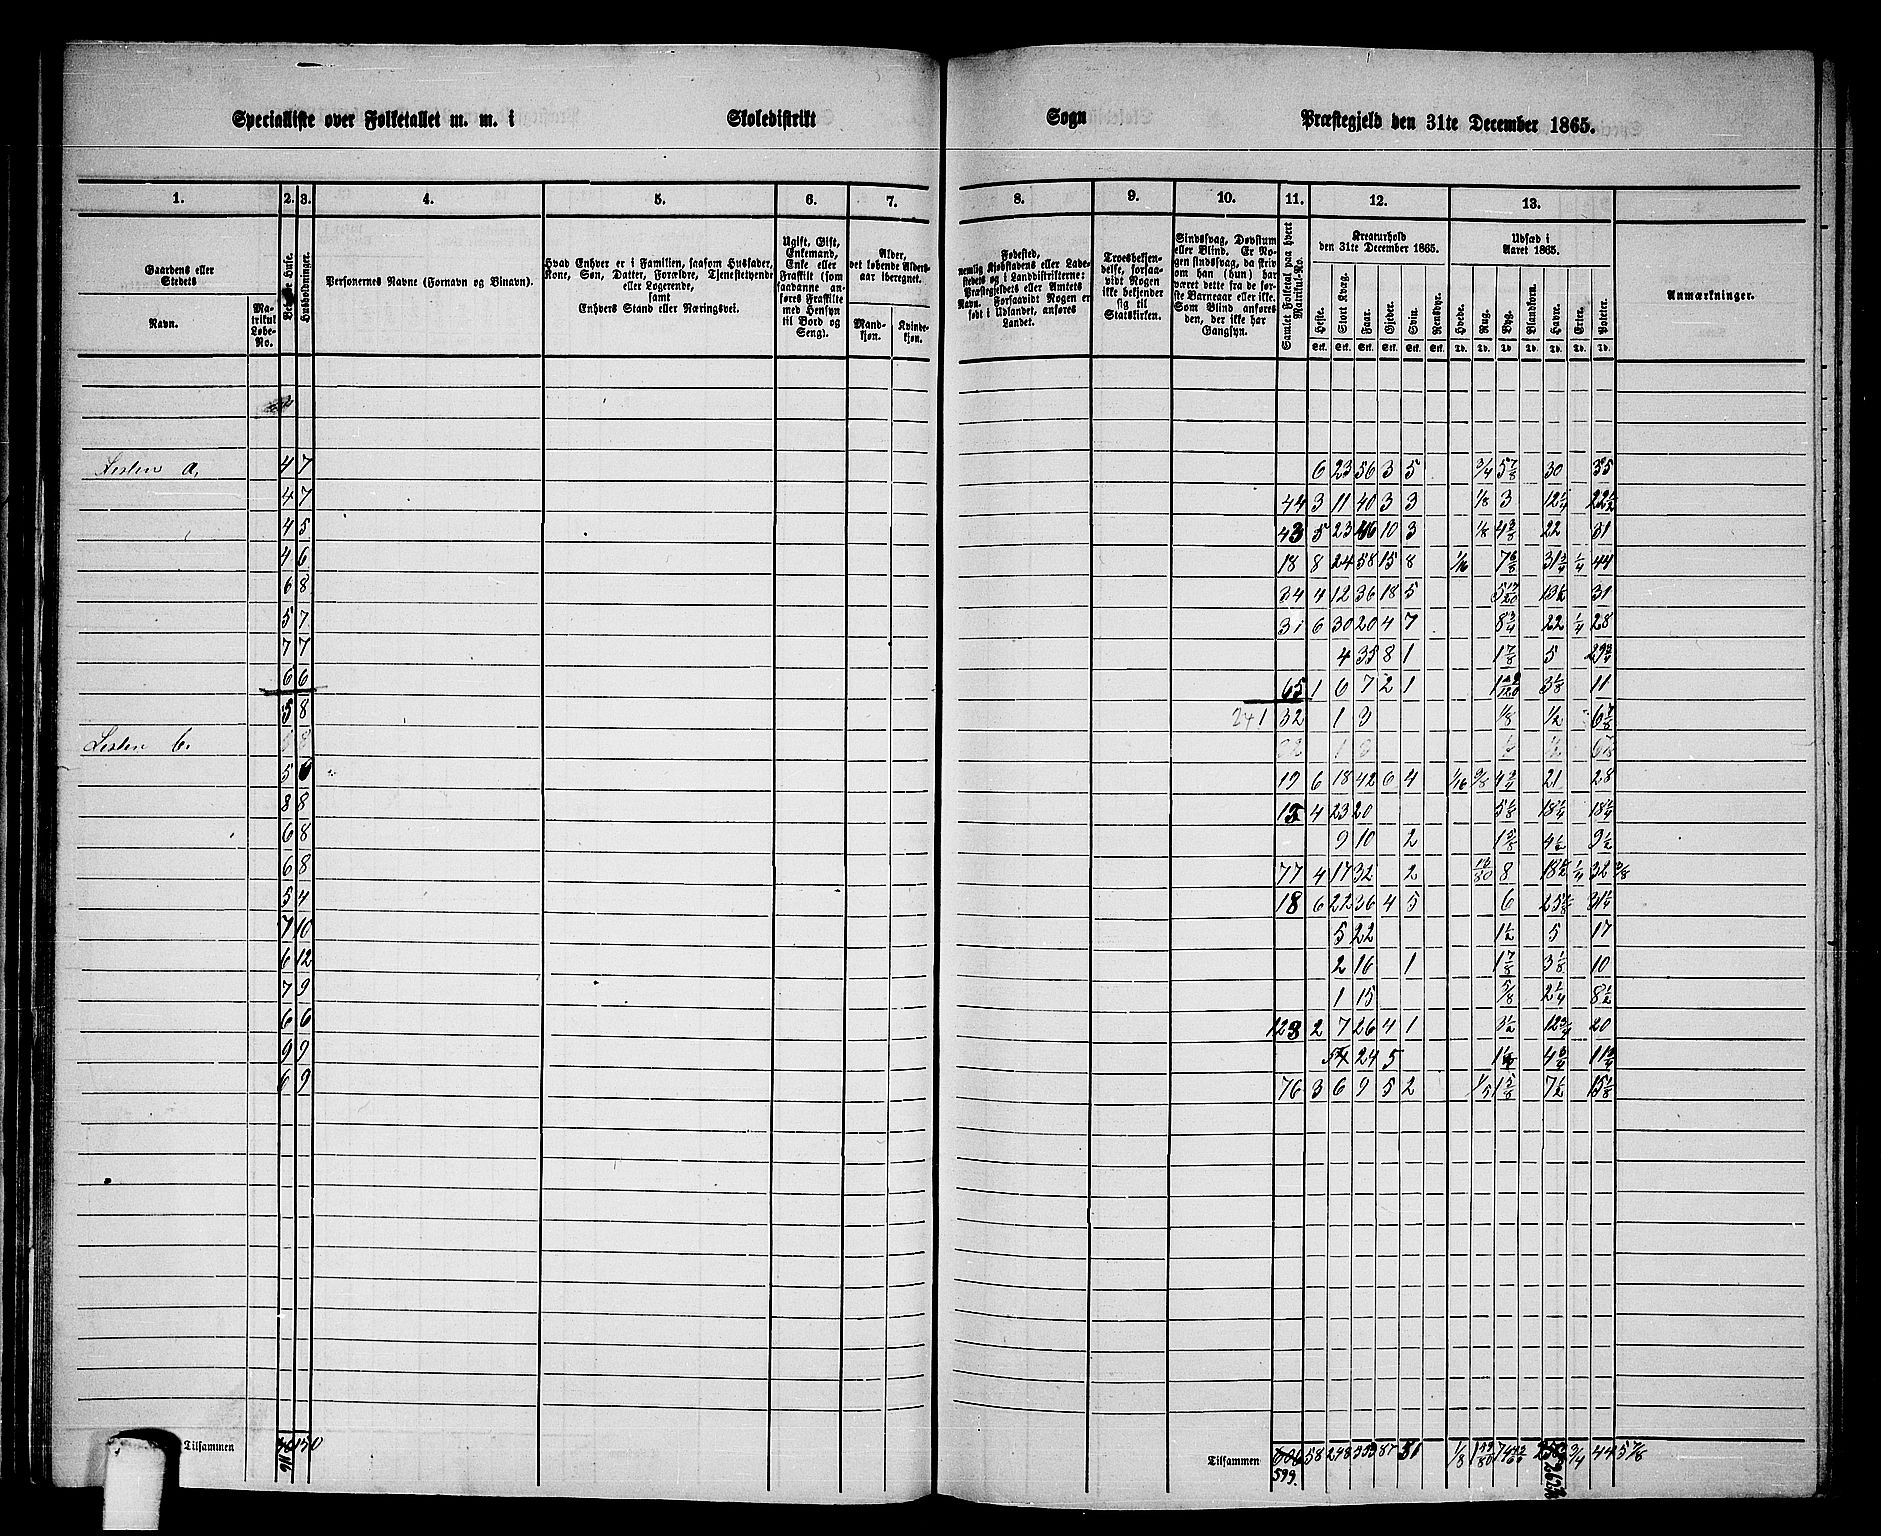 Specialliste over Folketallet m. m. i Skoledistrikt Sogn Præstegjeld den 31te December 1865.
1. 2. 3. 4. 5. 6. 7. 8. 9. 10. 11. 12. 13.
Gaardens eller Stedets
Navn.
Matrikul Løbe-No.
Beboede Huse.
Husholdninger.
Personernes Navne (Fornavn og Binavn).
Hvad Enhver er i Familien, saasom Husfader, Kone, Søn, Datter, Forældre, Tjenestetyende eller Logerende,
samt
Enhvers Stand eller Næringsvei.
Ugift, Gift, Enkemand, Enke eller Fraskilt (som saadanne anføres Fraskilte med Hensyn til Bord og Seng).
Alder, det løbende Aldersaar iberegnet.
Mandkjøn.
Kvindekjøn.
Fødested,
nemlig Kjøbstadens eller Ladestedets og i Landdistrikterne: Præstegjeldets eller Amtets Navn. Forsaavidt Nogen er født i Udlandet, anføres Landet.
Troesbekjendelse, forsaavidt Nogen ikke bekjender sig til Statskirken.
Sindssvag, Døvstum eller Blind. Er Nogen sindssvag, da skrives om han (hun) har været dette fra de første Barneaar eller ikke. Som Blind anføres den, der ikke har Gangsyn.
Samlet Folketal paa hvert Matrikul-No.
Kreaturhold
den 31te December 1865.
Heste. Stort Kvæg. Faar. Gjeder. Svin. Rensdyr.
Stk. Stk. Stk. Stk. Stk. Stk.
Udsæd i
Aaret 1865.
Hvede. Rug. Byg. Blandkorn. Havre. Erter. Poteter.
Td. Td. Td. Td. Td. Td. Td.
Anmærkninger.
4 7 6 23 56 3 5 3/4 5 7/8 30 35
4 7 44 3 11 40 3 3 1/8 3 12 1/4 22 1/2
4 5 43 5 23 46 10 3 1/8 22 31
4 6 18 8 24 58 15 8 1/16 31 3/4 1/4 44
6 8 34 4 12 36 18 5 5 17/20 13 1/2 31
5 7 31 6 30 20 4 7 8 3/4 22 1/4 28
7 7 4 35 8 1 1 7/8 5 29 3/4
6 6 65 1 6 7 2 1 3 1/8 11
5 8 241 32 1 3 1/8 1/2 6 7/8
5 6 19 6 18 42 6 4 1/16 4 3/4 21 28
8 8 15 4 23 20 5 1/8 18 1/4 18 1/4
6 8 9 10 2 1 5/8 4 1/2 9 1/2
6 8 77 4 17 32 2 8 18 1/2 1/4 32 3/8
5 4 18 6 22 36 4 5 6 31 1/4
7 10 5 22 1 1/2 5 17
6 12 2 16 1 1 7/8 3 1/8 10
7 9 1 15 5/8 2 1/4 8 1/2
6 6 123 2 7 26 4 1 3 1/2 12 3/4 20
9 9 24 5 4 3/4 11 3/4
6 9 76 3 6 9 5 2 1/5 1 5/8 7 1/2 15 1/8
Tilsammen 150
Tilsammen 58 248 553 87 51 1/8 3/4 445 7/8
599.